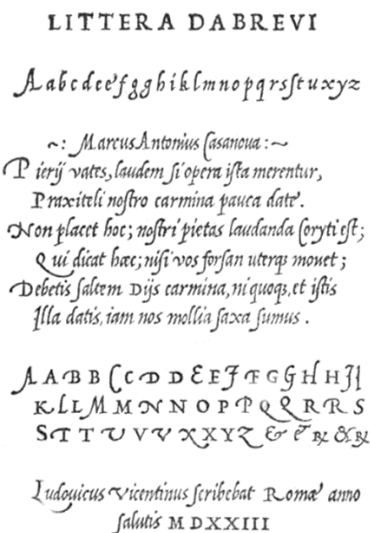 LITTERA DABREVI
Aabcdeefgghiklmnopqrsſtuxyz
~: Marcus Antonius Casanova :~
Pierij vates, laudem ſi opera iſta merentur,
Praxiteli noſtro carmina pauca date.
Non placet hoc; noſtri pietas laudanda Coryti eſt;
Qui dicat hæc; niſi vos forſan uterqꝫ mouet;
Debetis ſaltem Dijs carmina, ni quoqꝫ, et iſtis
Illa datis, iam nos mollia ſaxa ſumus.
AABBCCDDEEFFGGHHIJ
KLLMMNNOPPQQRRS
STTUVVXXYZ & &
Ludouicus Vicentinus ſcribebat Romæ anno
ſalutis MDXXIII